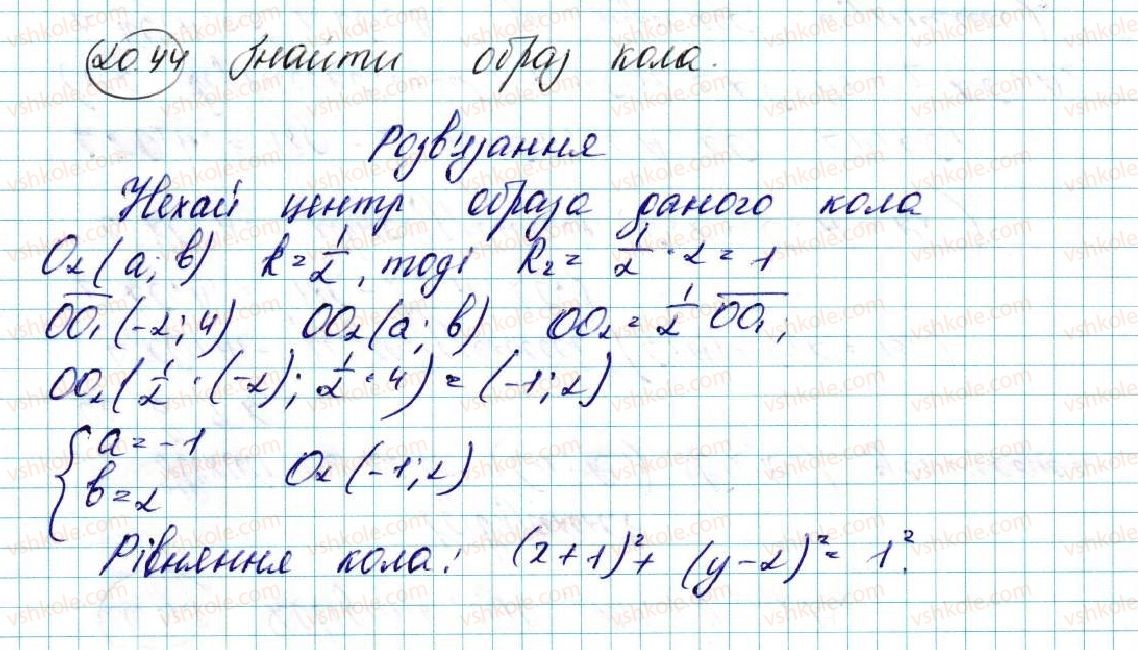 20.44 Знайти образ кола.
Розв'язання
Нехай центр образа даного кола
O₂(a; в) k = 1/2, тоді R₂ = 1/2 · 2 = 1
OO₁(-2; 4) OO₂(a; в) OO₂ = 1/2 OO₁;
OO₂(1/2 · (-2); 1/2 · 4) = (-1; 2)
{ a = -1
в = 2 O₂(-1; 2)
Рівняння кола: (x + 1)² + (y - 2)² = 1².
vshkole.com